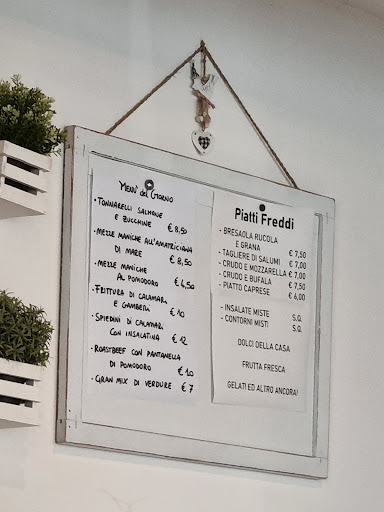 MENU' del GIORNO
• TONNARELLI SALMONE
E ZUCCHINE € 8,50
• MEZZE MANICHE ALL'AMATRICIANA
DI MARE € 8,50
• MEZZE MANICHE
AL POMODORO € 6,50
• FRITTURA DI CALAMARI
E GAMBERI € 10
• SPIEDINI DI CALAMARI
CON INSALATINA € 12
• ROASTBEEF CON PANTANELLA
DI POMODORO € 10
• GRAN MIX DI VERDURE € 7
Piatti Freddi
- BRESAOLA RUCOLA
E GRANA € 7,50
- TAGLIERE DI SALUMI € 7,00
- CRUDO E MOZZARELLA € 7,00
- CRUDO E BUFALA € 7,50
- PIATTO CAPRESE € 6,00
- INSALATE MISTE S.Q.
- CONTORNI MISTI S.Q.
DOLCI DELLA CASA
FRUTTA FRESCA
GELATI ED ALTRO ANCORA!